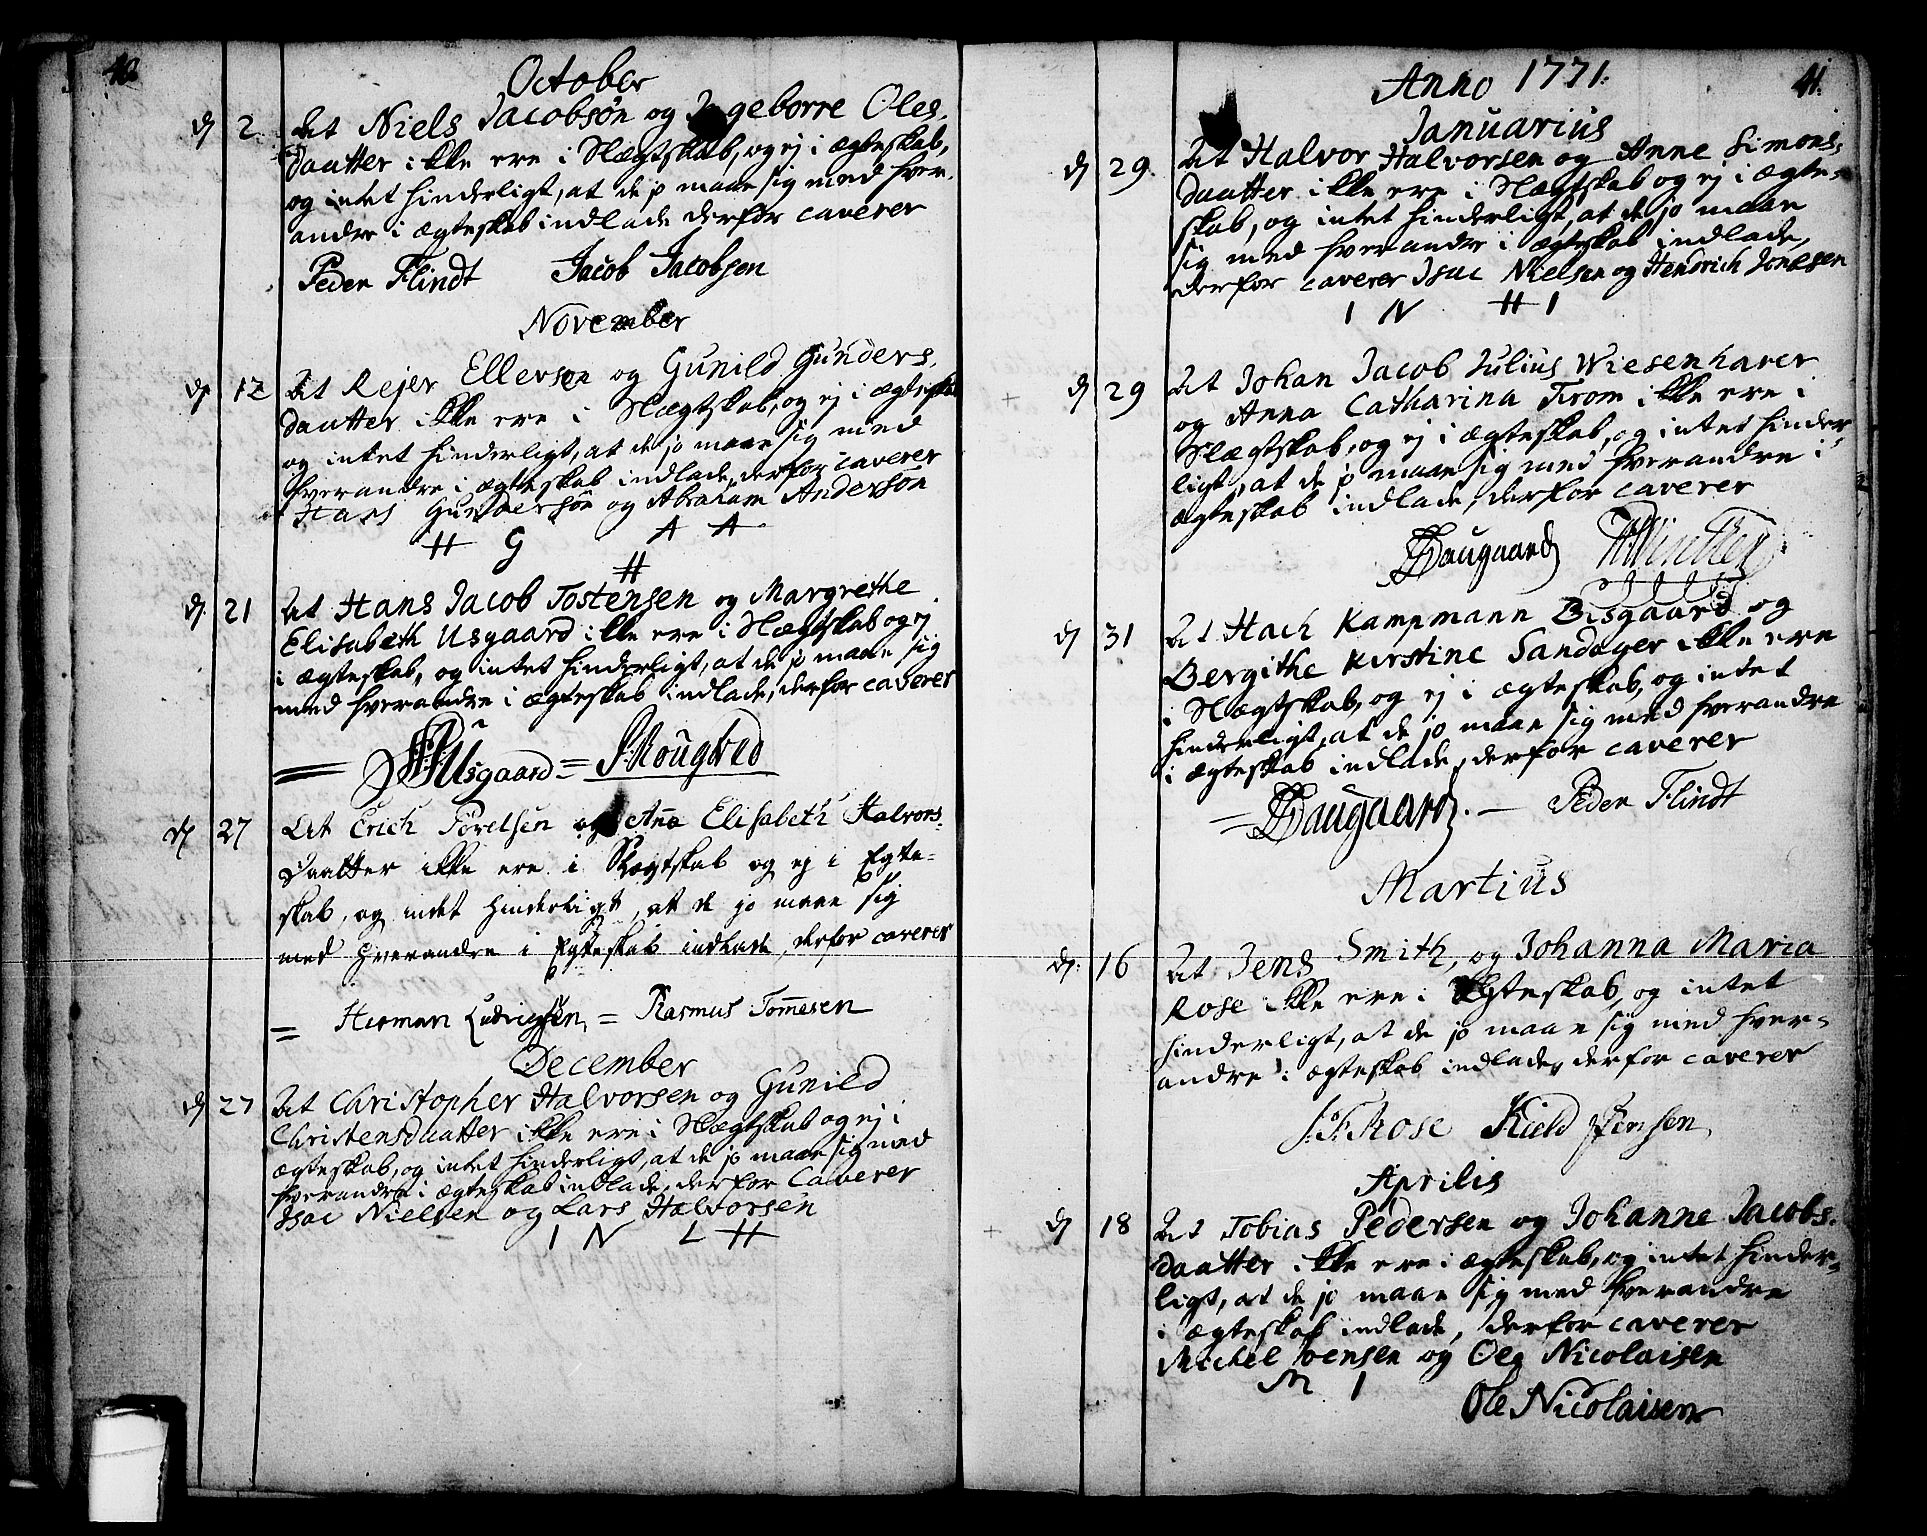 40.
October
dj 2. At Niels Jacobsön og Ingeborre Oles,
daatter ikke ere i Slægtskab, og ej i ægteskab,
og intet hinderligt, at de jo maae sig med hver,
andre i ægteskab indlade derfor caverer
Peder Flindt Jacob Jacobsen
November
dj 12 At Rejer Ellevsen og Gunild Gunders,
daatter ikke ere i Slægtskab, og ej i ægteskab
og intet hinderligt, at de jo maae sig med
hverandre i ægteskab indlade, derfor caverer
Hans Gundersön og Abraham Andersön
H G A A
H
dj 21 At Hans Jacob Tostensen og Margrethe
Elisabeth Usgaard ikke ere i Slægtskab og ej
i ægteskab, og intet hinderligt, at de jo maae sig
med hverandre i ægteskab indlade, derfor caverer
Usgaard = Rougtved
dj 27 At Erich Törelsen og Aña Elisabeth Halvors-
Daatter ikke ere i Slægtskab og ej i Egte-
skab, og indet Hinderligt, at de jo maae sig
med Hverandre i Egteskab indlade, derfor caverer
= Herman Ludvigsen, = Rasmus Tom̄esen
December
dj 27 At Christopher Halvorsen og Gunild
Christensdaatter ikke ere i Slægtskab og ej i
ægteskab, og intet hinderligt, at de jo maae sig med
hverandre i ægteskab indlade, derfor Caverer
Isac Nielsen og Lars Halvorsen
I N L H
41.
Anno 1771.
Januarius
dj 29. At Halvor Halvorsen og Anne Simons,
daatter ikke ere i Slægtskab og ej i ægte-
skab, og intet hinderligt, at de jo maae
sig med hverandre i ægteskab indlade,
derfor caverer Isac Nielsen og Hendrich Jonesen
I N H I
dj 29 At Johan Jacob Julius Wiesenhaver
og Anna Catharina From ikke ere i
Slægtskab, og ej i ægteskab, og intet hinder
ligt, at de jo maae sig med hverandre i
ægteskab indlade, derfor caverer
Daugaard Winther
dj 31 At Hach Kampmann Bisgaard og
Bergithe Kirstine Sandager ikke ere
i Slægtskab, og ej i ægteskab, og intet
hinderligt, at de jo maae sig med hverandre
i ægteskab indlade, derfor caverer
= Daugaard. — Peder Flindt
Martius
dj. 16 At Jens Smith, og Johanna Maria
Rose ikke ere i Egteskab, og intet
hinderligt, at de jo maae sig med hver-
andre i ægteskab indlade, derfor caverer
J. F. Rose Kield Jensen,
Aprilis
dj 18 At Tobias Pedersen og Johanne Jacobs.
daatter ikke ere i ægteskab, og intet hinder-
ligt, at de jo maae sig med hverandre
i ægteskab indlade, derfor caverer
Michel Joensen og Ole Nicolaisen
M I
Ole Nicolaisen